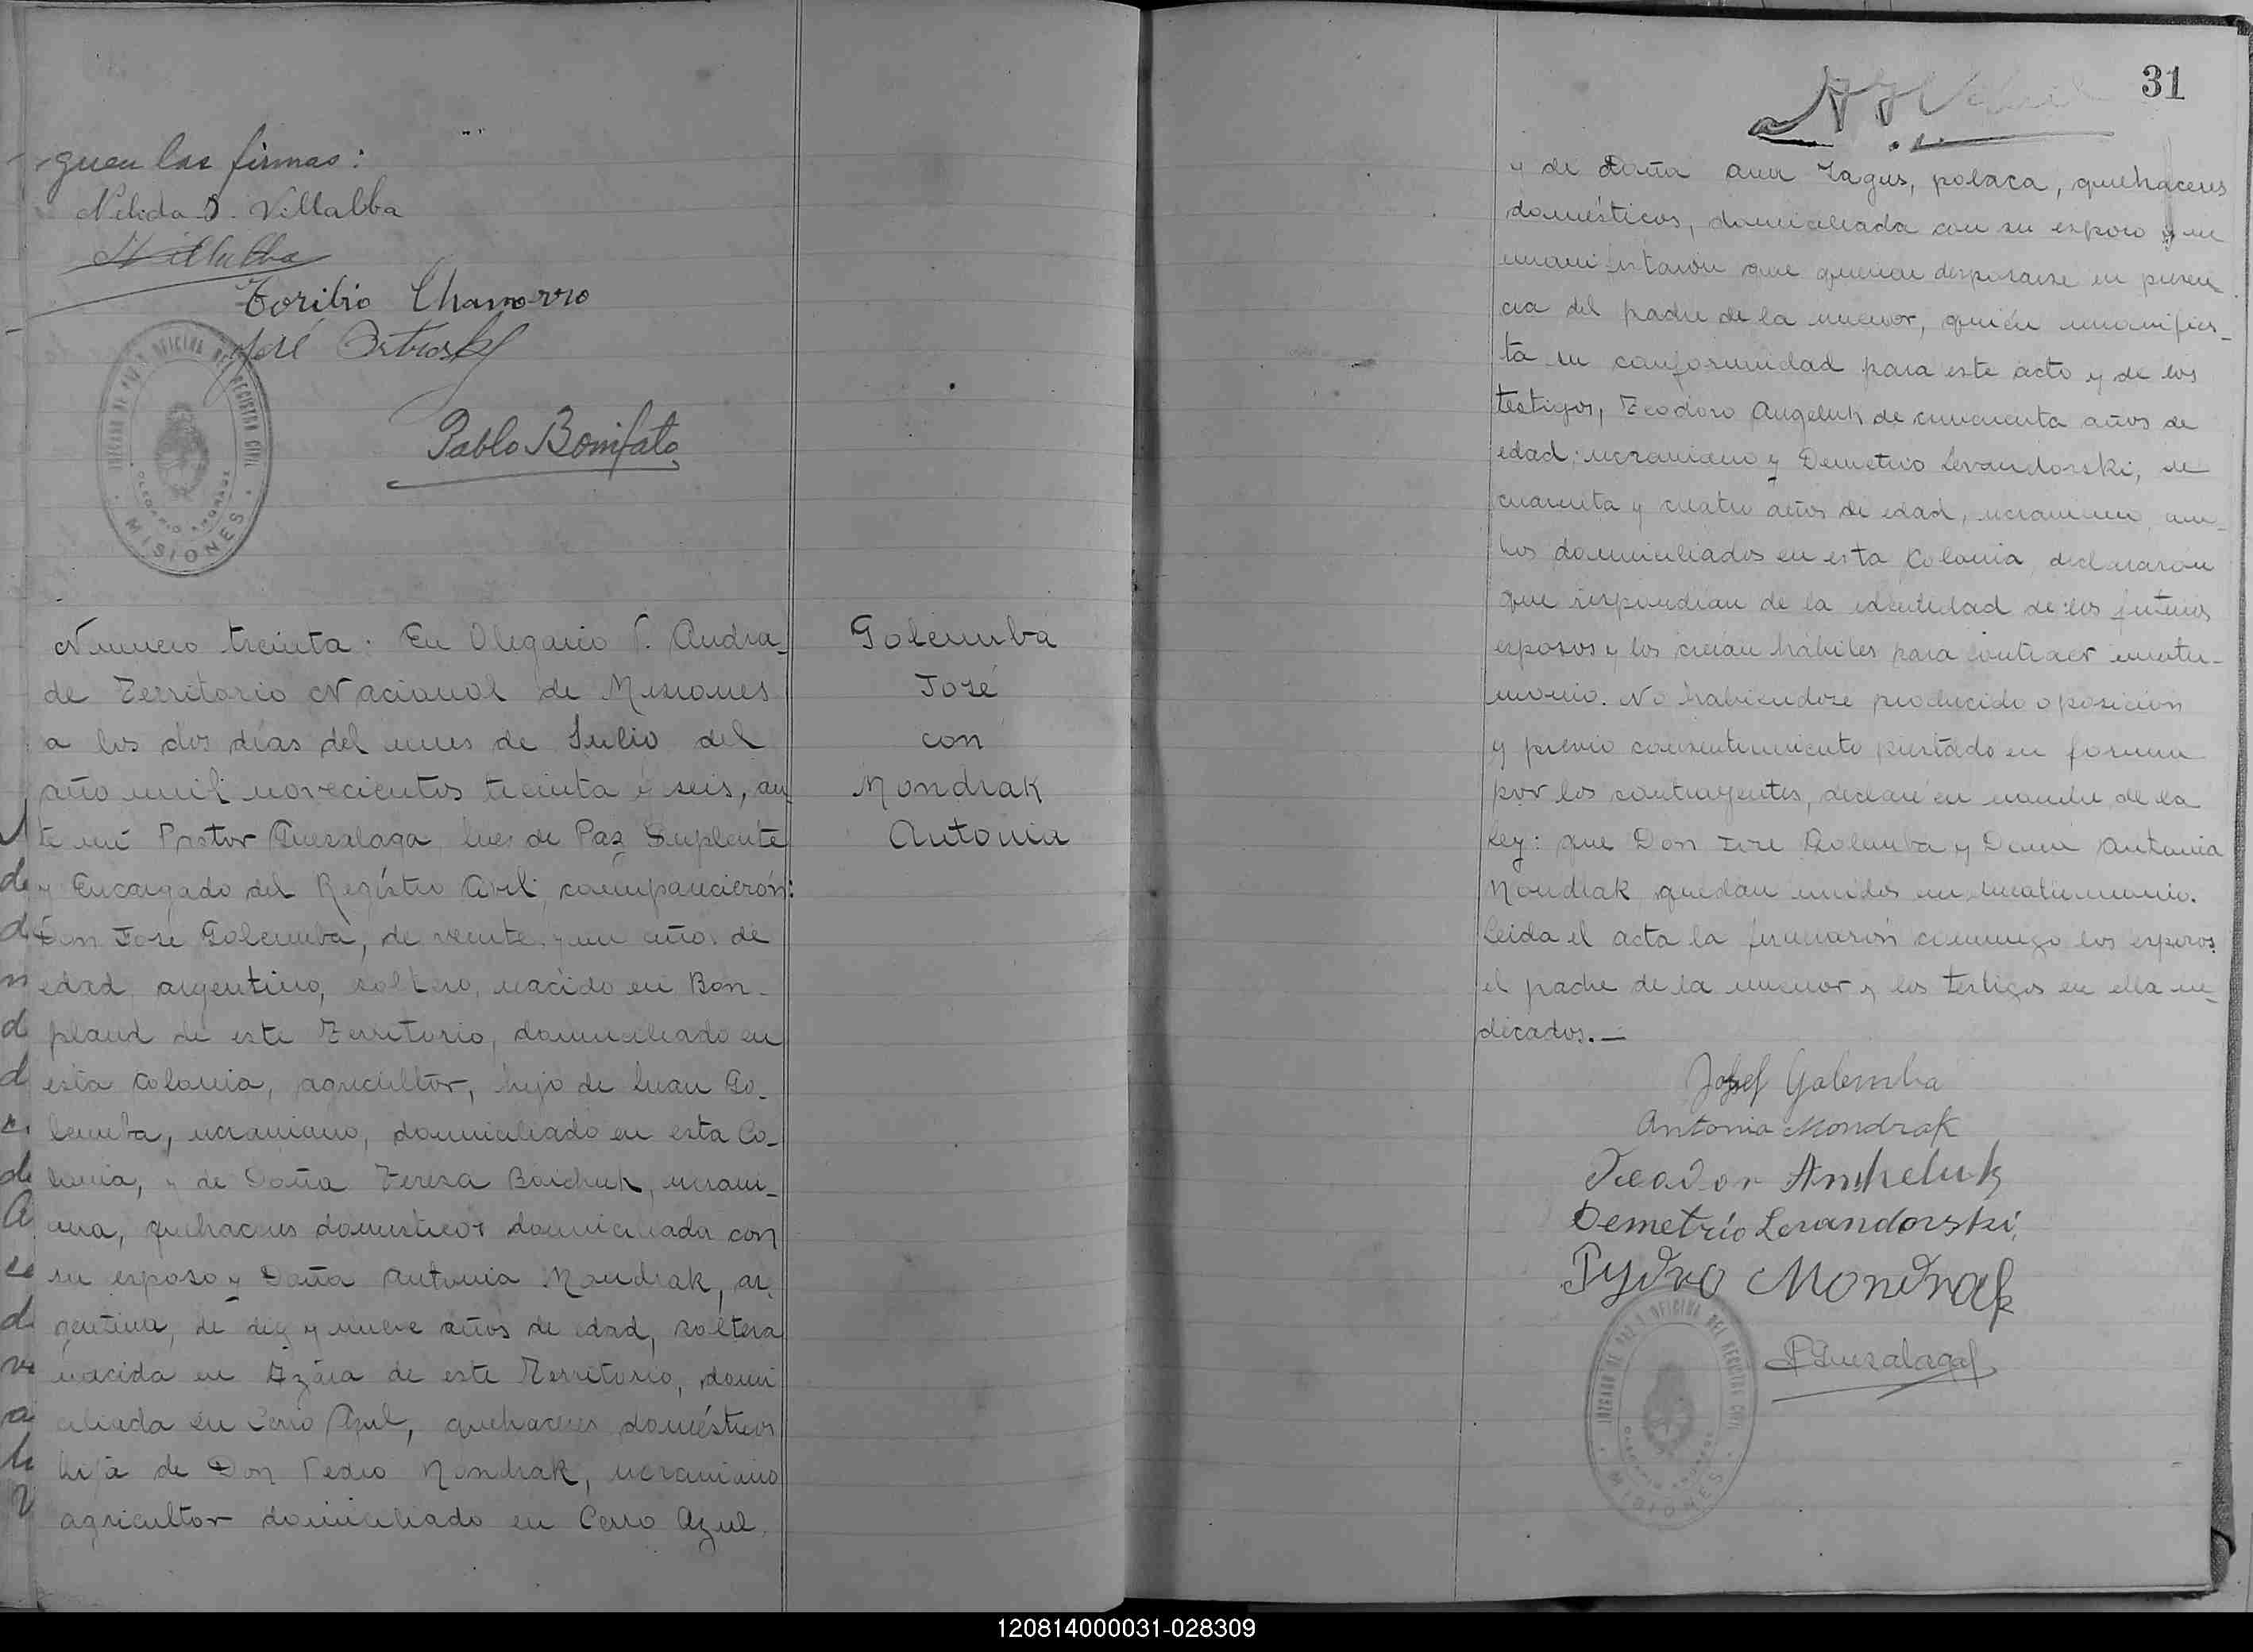 guen las firmas:
Nélida D. Villalba
Villalba
Toribio Chamorro
José
Pablo Bonifato
JUZGADO DE PAZ Y OFICINA DEL REGISTRO CIVIL
MISIONES
Numero treinta: En Olegario V. Andra-
de Territorio Nacional de Misiones
a los dos días del mes de Julio del
año mil novecientos treinta y seis, an-
te mí Pastor Guezalaga Juez de Paz Suplente
y Encargado del Regístro Civil, comparecierón:
Don José Golemba, de veinte y un años de
edad, argentino, soltero, nacido en Bon-
pland de este Territorio, domiciliado en
esta Colonia, agricultor, hijo de Juan Go-
lemba, ucraniano, domiciliado en esta Co-
lonia, y de Doña Teresa Boichuk, ucrani-
ana, quehaceres domésticos domiciliada con
su esposo y Doña Antonia Mondrak, ar-
gentina, de diez y nueve años de edad, soltera
nacida en Azára de este Territorio, domi
ciliada en Cerro Azul, quehaceres domésticos
hija de Don Pedro Mondrak, ucraniano
agricultor domiciliado en Cerro Azul,
Golemba
José
con
Mondrak
Antonia
31
y de Doña Ana Zagus, polaca, quehaceres
domésticos, domiciliada con su esposo y
manifestarón que querian desposarse en presen-
cia del padre de la menor, quién manifies-
ta su conformidad para este acto y de los
testigos, Teodoro Angeluk de cincuenta años de
edad, ucraniano y Demetrio Levandorski, de
cuarenta y cuatro años de edad, ucraniano, am-
bos domiciliados en esta Colonia, declararon
que respondian de la identidad de los futuros
esposos y los creian hábiles para contraer matri-
monio. No habiendose producido oposicion
y previo consentimiento prestado en forma
por los contrayentes, declaré en nombre de la
Ley: que Don José Golemba y Doña Antonia
Mondrak quedan unidos en matrimonio.
Leida el acta la firmarón conmigo los esposos
el padre de la menor y los testigos en ella in-
dicados.—
Josef Golemba
Antonia Mondrak
Teodor Anheluk
Demetrio Levandorski
Pydro Mondrak
P Guezalaga
JUZGADO DE PAZ Y OFICINA DEL REGISTRO CIVIL
MISIONES
120814000031-028309